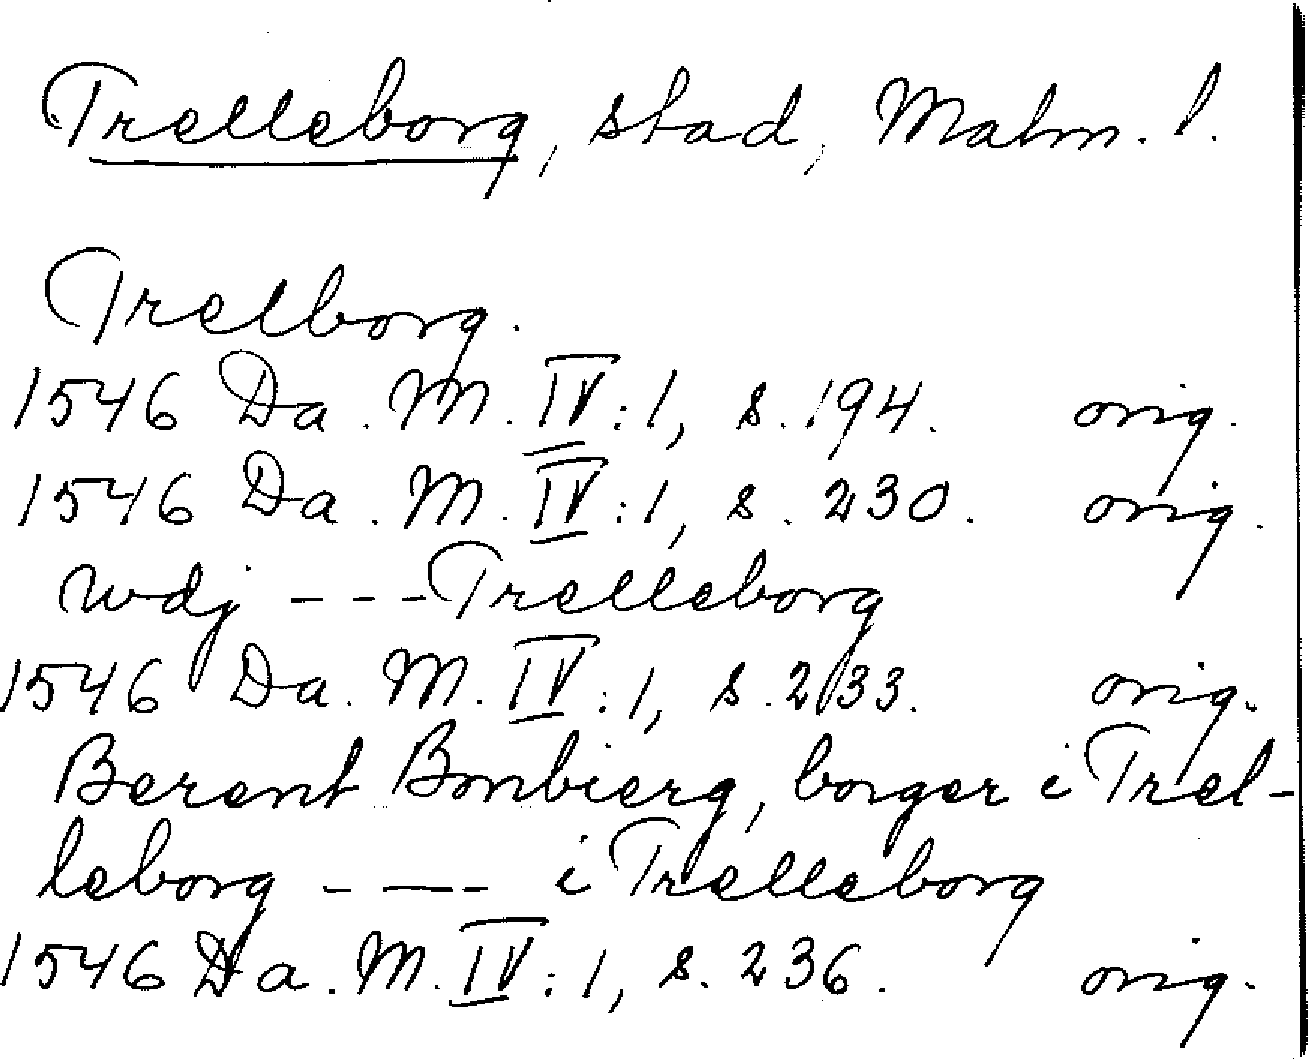 Trelleborg, stad, Malm. l.
Trelborg.
1546 Da. M. IV:1, s. 194. orig.
1546 Da. M. IV:1, s. 230. orig.
wdj --- Trelleborg
1546 Da. M. IV:1, s. 233. orig.
Berent Bonbierg, borger i Trel-
leborg --- i Trelleborg
1546 Da. M. IV:1, s. 236. orig.